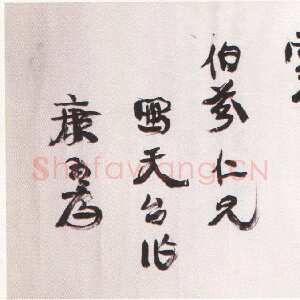 伯仁兄
寫天台作
康有為
Shufawang.CN